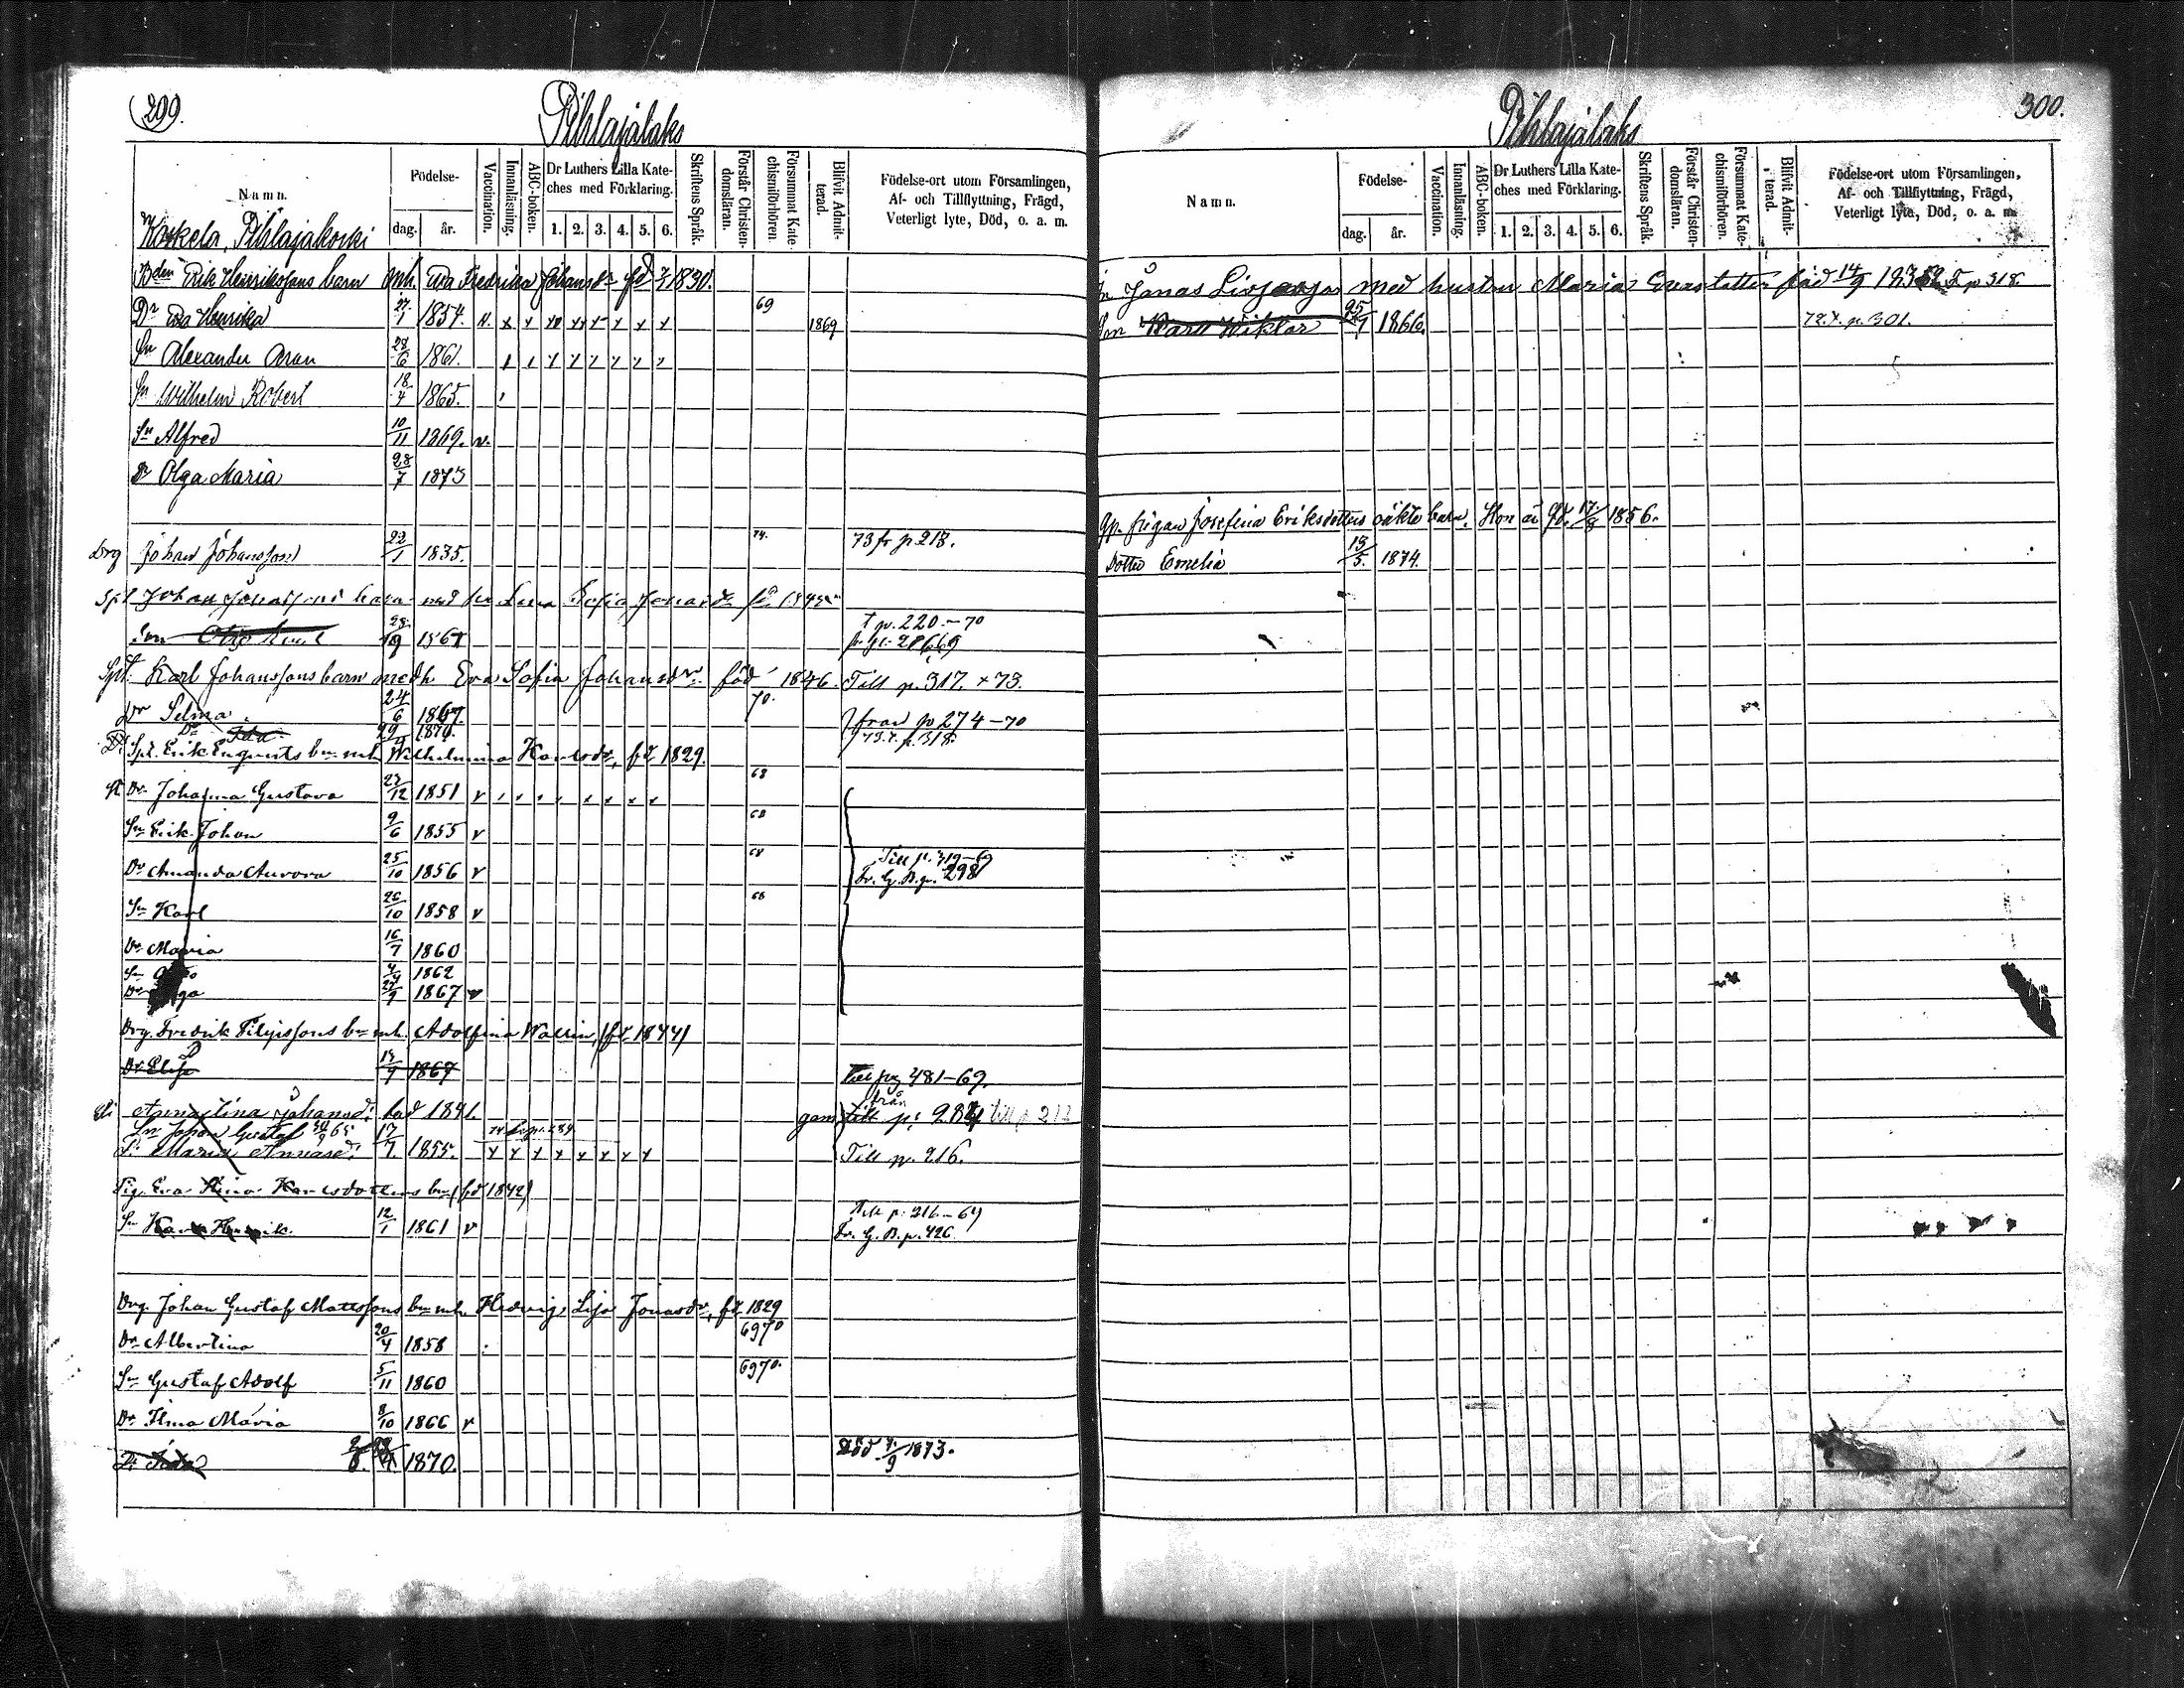 299.
Pihlajalaks
Namn.
Födelse-
dag.
år.
Vaccination.
Innanläsning.
ABC-boken.
Dr Luthers Lilla Kate-
ches med Förklaring.
1. 2. 3. 4. 5. 6.
Skriftens Språk.
Förstår Christen-
domsläran.
Försummat Kate-
chismiförhören.
Blifvit Admit-
terad.
Födelse-ort utom Församlingen,
Af- och Tillflyttning, Frägd,
Veterligt lyte, Död, o. a. m.
Koskela, Pihlajakoski
Bden Erik Henrikssons barn mh. Eva Fredrika Johansdr fd 1830.
Dr Eva Henrika 27/1 1854. 69 1869
Sn Alexander Aran 28/6 1861.
Sn Wilhelm Robert 18/4 1865.
Sn Alfred 10/11 1869. v.
Dr Olga Maria 28/7 1873
Drg Johan Johansson 22/1 1835. 74. 73 fr p 218.
Spt Johan barn med hu Lena Sofia
Son Otto 1867 † p. 220.-70
Spt. Karl Johanssons barn medh Eva Sofia Johansdr. född 1846. Till p. 317. + 73.
Dr Selma. 24/6 1867. 70. från p 274-70
Dr Ida 1870. 73. t. p. 318.
Spt. Erik Enqvists bn mh Wilhelmina Karlsdr, fd 1829.
Dr Johanna Gustava 27/12 1851 v 68
Sn Erik Johan 9/6 1855 v 68
Dr Amanda Aurora 25/10 1856 v 68 Till p. 319-69
Fr. G. B. p. 298
Sn Karl 26/10 1858 v 68
Dr Maria 16/7 1860
Sn 1862
Dr 1867 v
Drg. Fredrik bn mh. Adolfina Wallin, (fd. 1844)
Dr Elisa 1867 Till pg 481-69.
Anna Stina Johansd: född 1841. från
Sn Johan Gustaf 65
Maria Annasd: 17/7 1855. Till p. 216.
Pig. Eva Stina Karlsdotters bn (fd 1842)
Sn Karl Henrik. 12/1 1861 v Till p. 216-69
Fr. G. B. p. 426
Drg. Johan Gustaf Mattssons bn mh. Hedvig Lisa Jonasdr, fd 1829
Dr Albertina 20/4 1858 6970
Sn Gustaf Adolf 5/11 1860 6970.
Dr Ilma Maria 8/10 1866 v
Dr 1870. Död 7/9 1873.
300.
Pihlajalaks
Namn.
Födelse-
dag.
år.
Vaccination.
Innanläsning.
ABC-boken.
Dr Luthers Lilla Kate-
ches med Förklaring.
1. 2. 3. 4. 5. 6.
Skriftens Språk.
Förstår Christen-
domsläran.
Försummat Kate-
chismiförhören.
Blifvit Admit-
terad.
Födelse-ort utom Församlingen,
Af- och Tillflyttning, Frägd,
Veterligt lyte, Död, o. a. m.
Jonas med hustru Maria Evasdotter född 14/9 p 318.
Son Karl Wiktor 25/7 1866. 72. t. p. 301.
Gp. pigan Josefina Eriksdotters oäkta barn. Hon är fd. 17/8 1856.
Dotter Emelia 13/5. 1874.